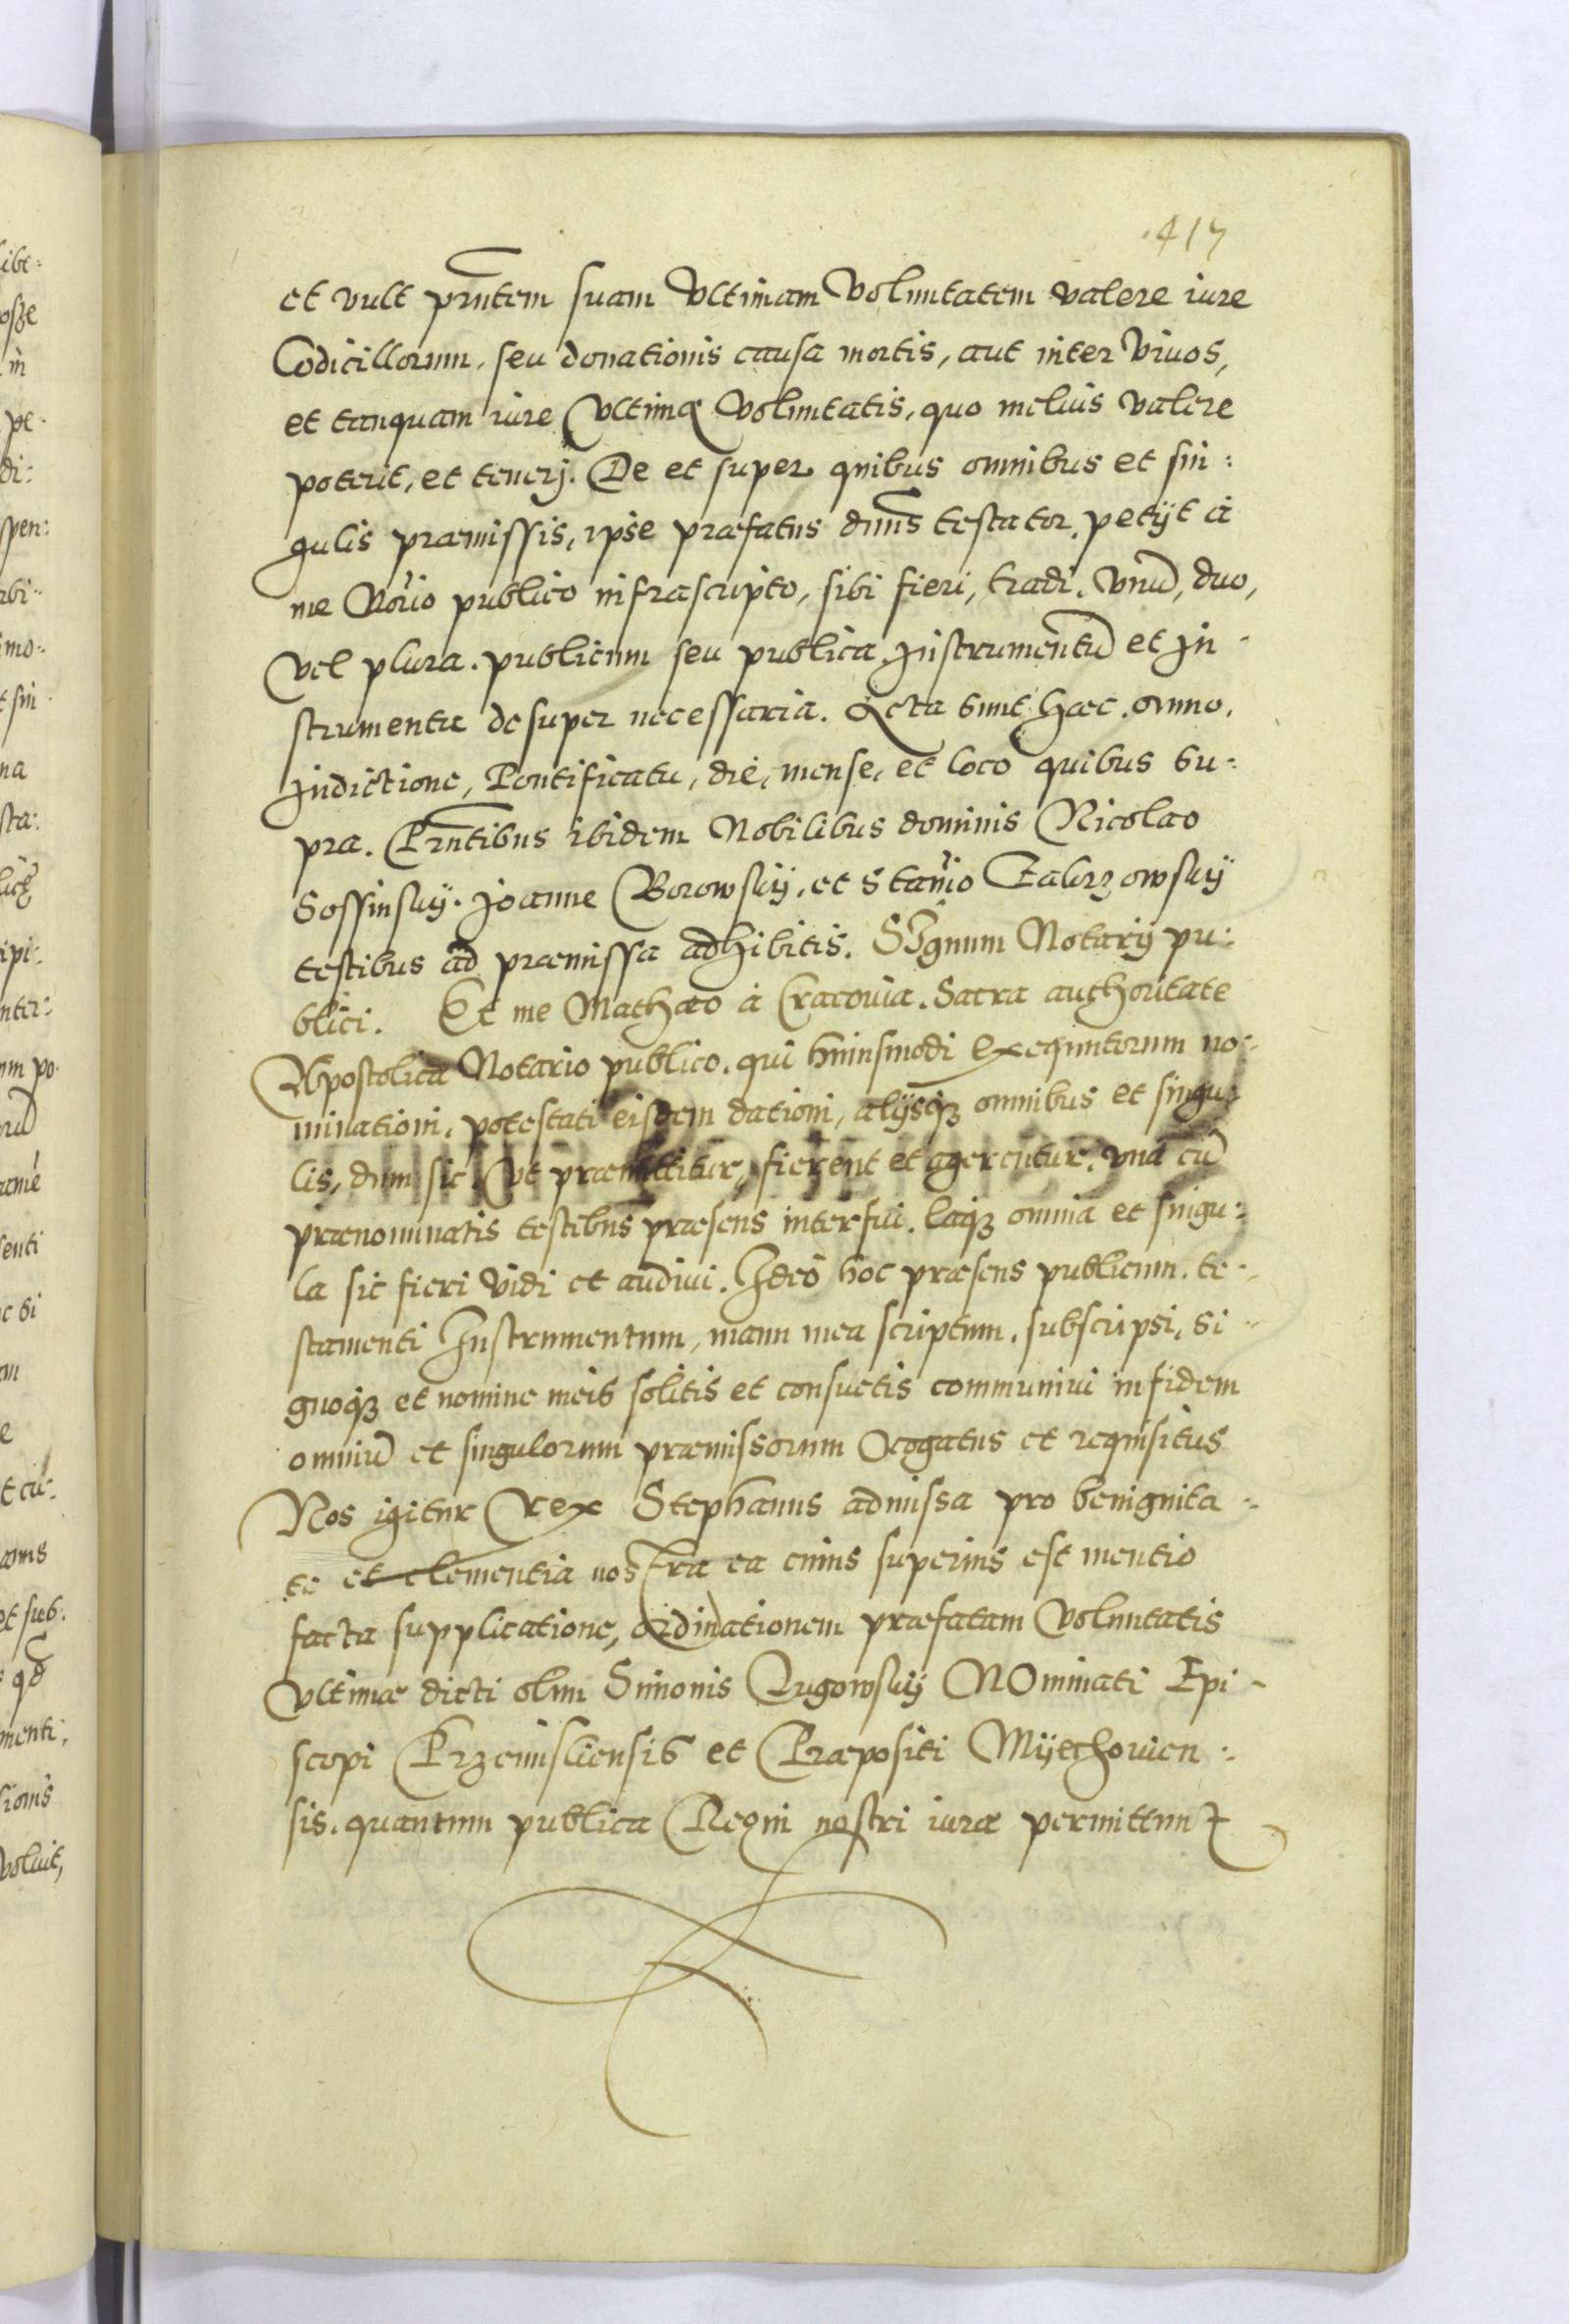 417
et vult prñtem suam Vltimam Voluntatem valere iure
Codicillorum, seu donationis causa mortis, aut inter Vivos,
et tanquam iure Vltimę Voluntatis, quo melius valere
poterit, et tenerj. De et super quibus omnibus et sin:
gulis præmissis, ipse præfatus dnus testator, petijt à
me Norio publico infrascripto, sibi fieri, tradi, Vnū, duo,
Vel plura, publicum seu publica, Jnstrumentū et Jn:
strumenta desuper necessaria. Acta sunt hæc, anno,
Jndictione, Pontificatu, die, mense, et loco quibus su:
pra. Prñtibus ibidem Nobilibus dominis Nicolao
Sossinskij, Joanne Borowskij, et Stanio
testibus ad præmissa adhibitis. SIgnum Notarij pu:
blici. Et me Mathæo à Cracovia, Sacra authoritate
Apostolica Notario publico, qui huiusmodi Exequutorum no:
minationi, potestati eisdem dationi, alijsq3 omnibus et singu:
lis, dum sic Vt præmittitur, fierent et agerentur, vnà cū
prænominatis testibus præsens interfui, Eaq3 omnia et singu:
la sic fieri Vidi et audivi. Jdeo hoc præsens publicum, te:
stamenti Jnstrumentum, manu mea scriptum, subscripsi, Si:
gnoq3 et nomine meis solitis et consuetis communivi in fidem
omniū et singulorum præmissorum Rogatus et requisitus
Nos igitur Rex Stephanus admissa pro benignita:
te et clementia nostra ea cuius superius est mentio
facta supplicatione, ordinationem præfatam Voluntatis
Vltimæ dicti olim Simonis Lugowskij NOminati Epi:
scopi Przemisliensis et Præpositi Mijechovien:
sis, quantum publica Regni nostri iura permittunt